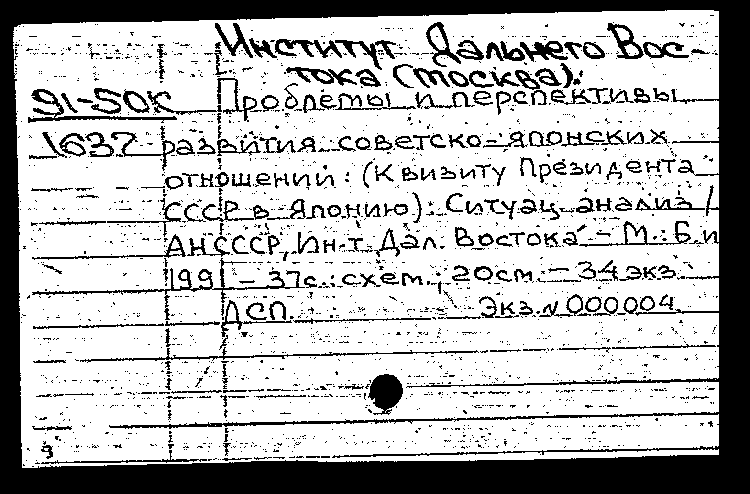 Институт Дальнего Вос-
тока (Москва).
91-50К Проблемы и перспективы
1637 развития советско-японских
отношений: (К визиту Президента
СССР в Японию): Ситуац. анализ /
АН СССР, Ин-т Дал. Востока - М.: Б.и
1991 - 37с.: схем.; 20см. - 34 экз.
ДСП. Экз. N 000004
9